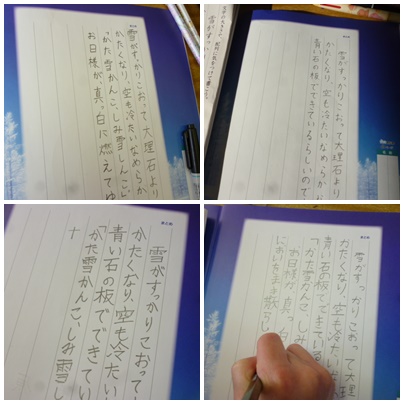 雪がすっかりこおって大理石より
かたくなり、空も冷たいなめらか
「かた雪かんこ、しみ雪しんこ」
お日様が、真っ白に燃えてゆ
雪がすっかりこおって大理石より
かたくなり、空も冷たいなめらか
青い石の板でできているらしいので
雪がすっかりこおって
かたくなり、空も冷たい
青い石の板でできてい
「かた雪かんこ、しみ雪し
十
雪がすっかりこおって大理
かたくなり、空も冷たい
青い石の板でできている
「かた雪かんこ、しみ
お日様が、真っ白
においをまき散らし